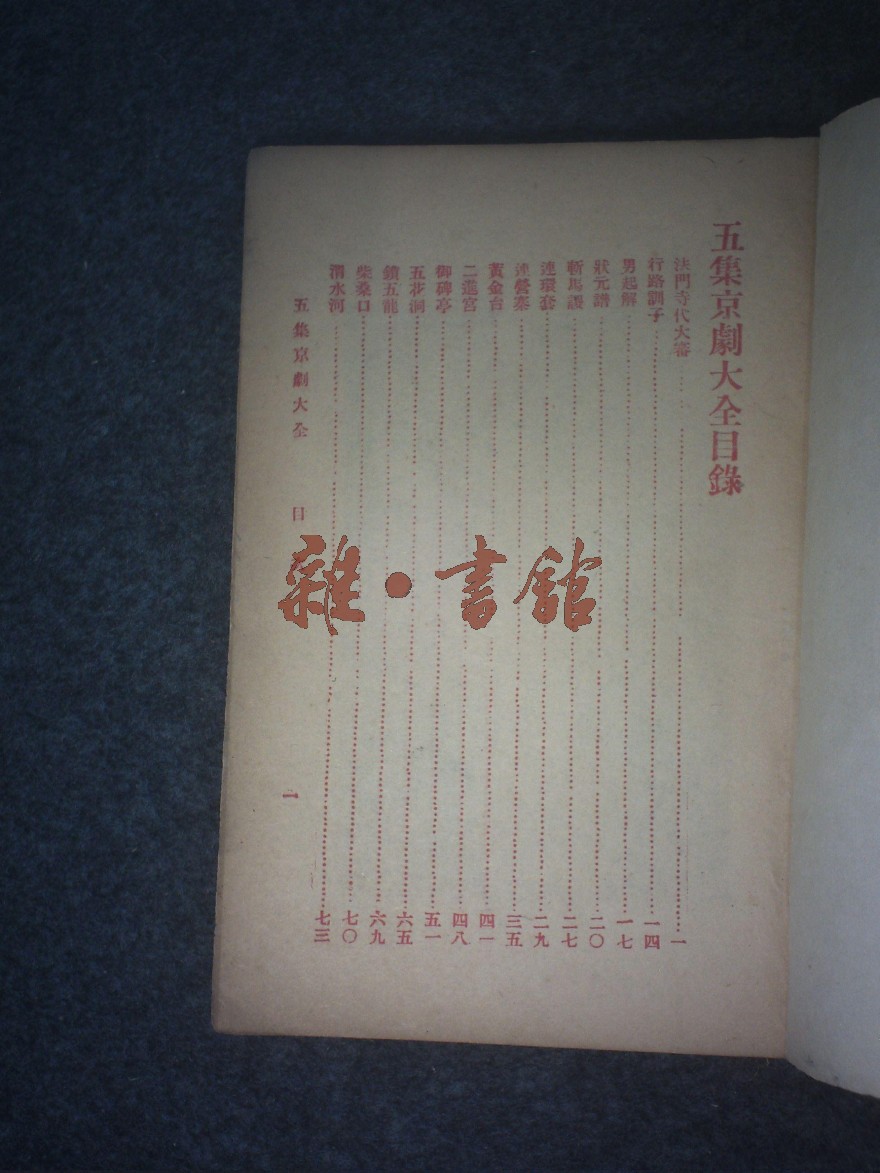 五集京劇大全目錄
法門寺代大審 一
行路訓子 一四
男起解 一七
狀元譜 二〇
斬馬謖 二七
連環套 二九
連營寨 三五
黃金台 四一
二進宮 四八
御碑亭 五一
五花洞 六五
鎖五龍 六九
柴桑口 七〇
渭水河 七三
五集京劇大全 目 一
雜·書館